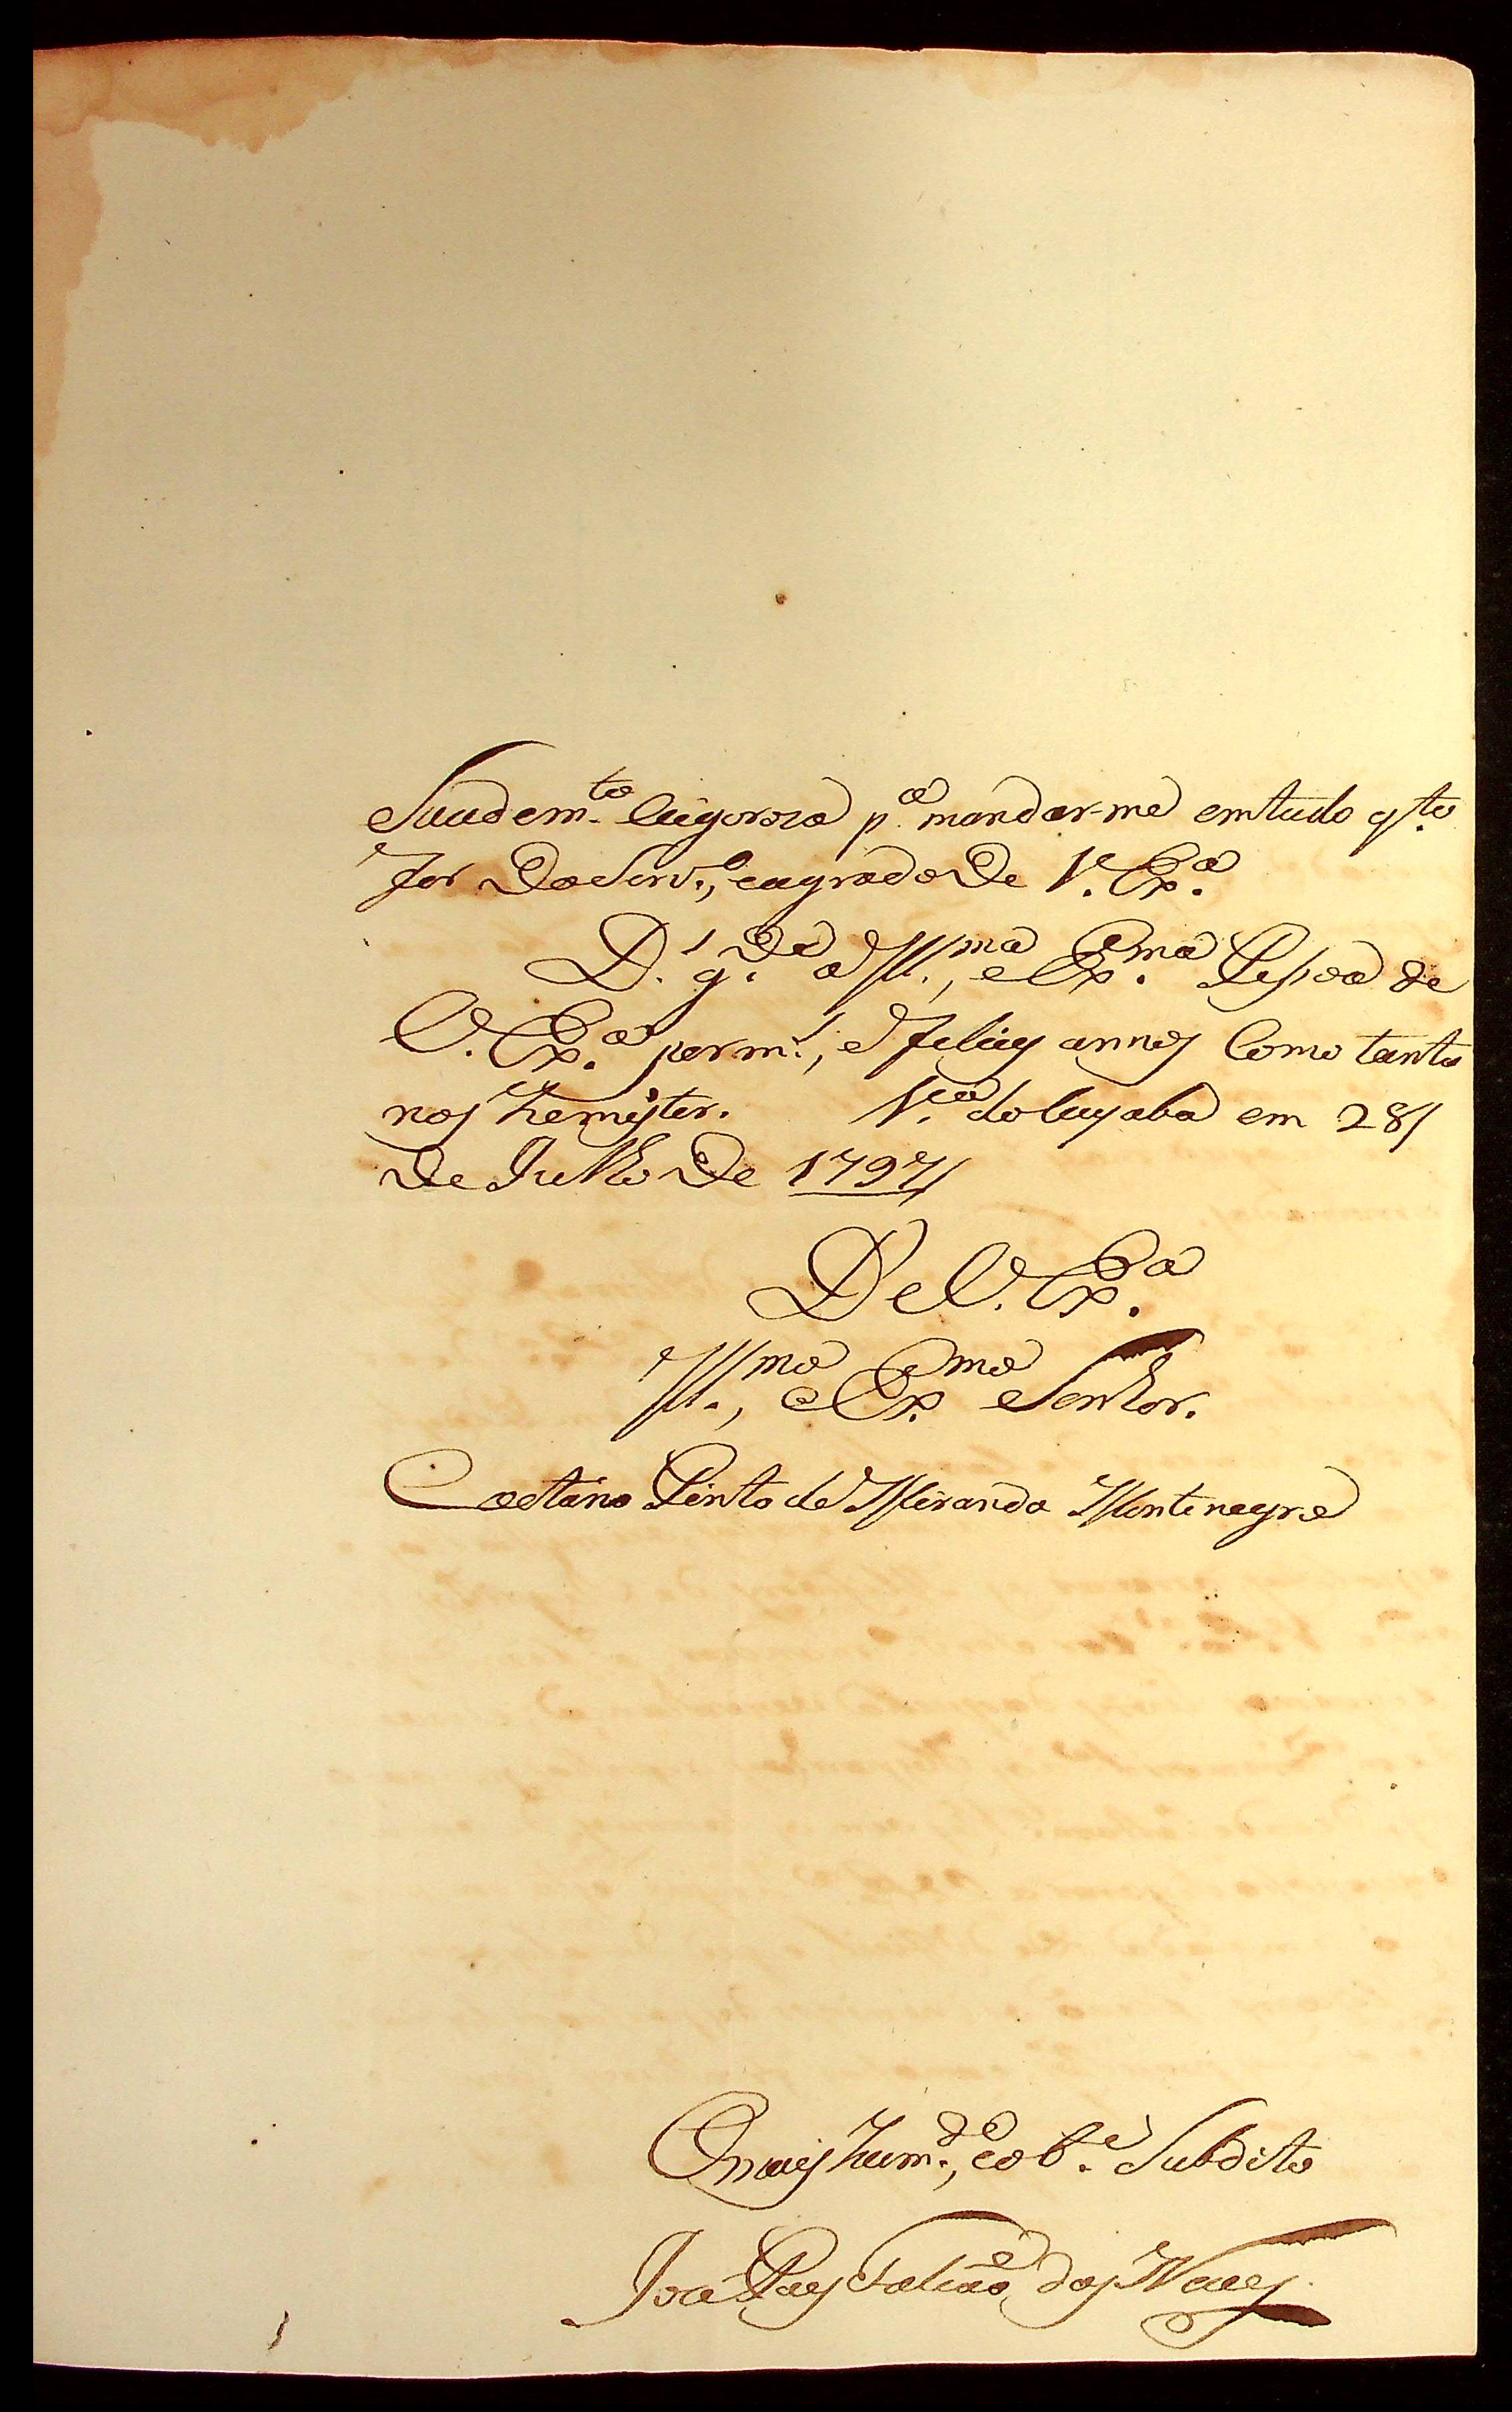 Suadem.to rigoroza p.a mandar-me em tudo q.to
for Do Serv.o, e agrado De V. Ex.a
D.s g.de a Ill.ma, e Ex.ma Pessoa de
V. Ex.a por m.s, e felizes annos Como tanto
nos he mister. V.a do Cuyabá em 28/
De Julho De 1797/
De V. Ex.a
Ill.mo, e Ex.mo Senhor.
Caetano Pinto de Miranda Montenegro
O mais hum.de, e ob.e Subdito
José Paes Falcão das Neves